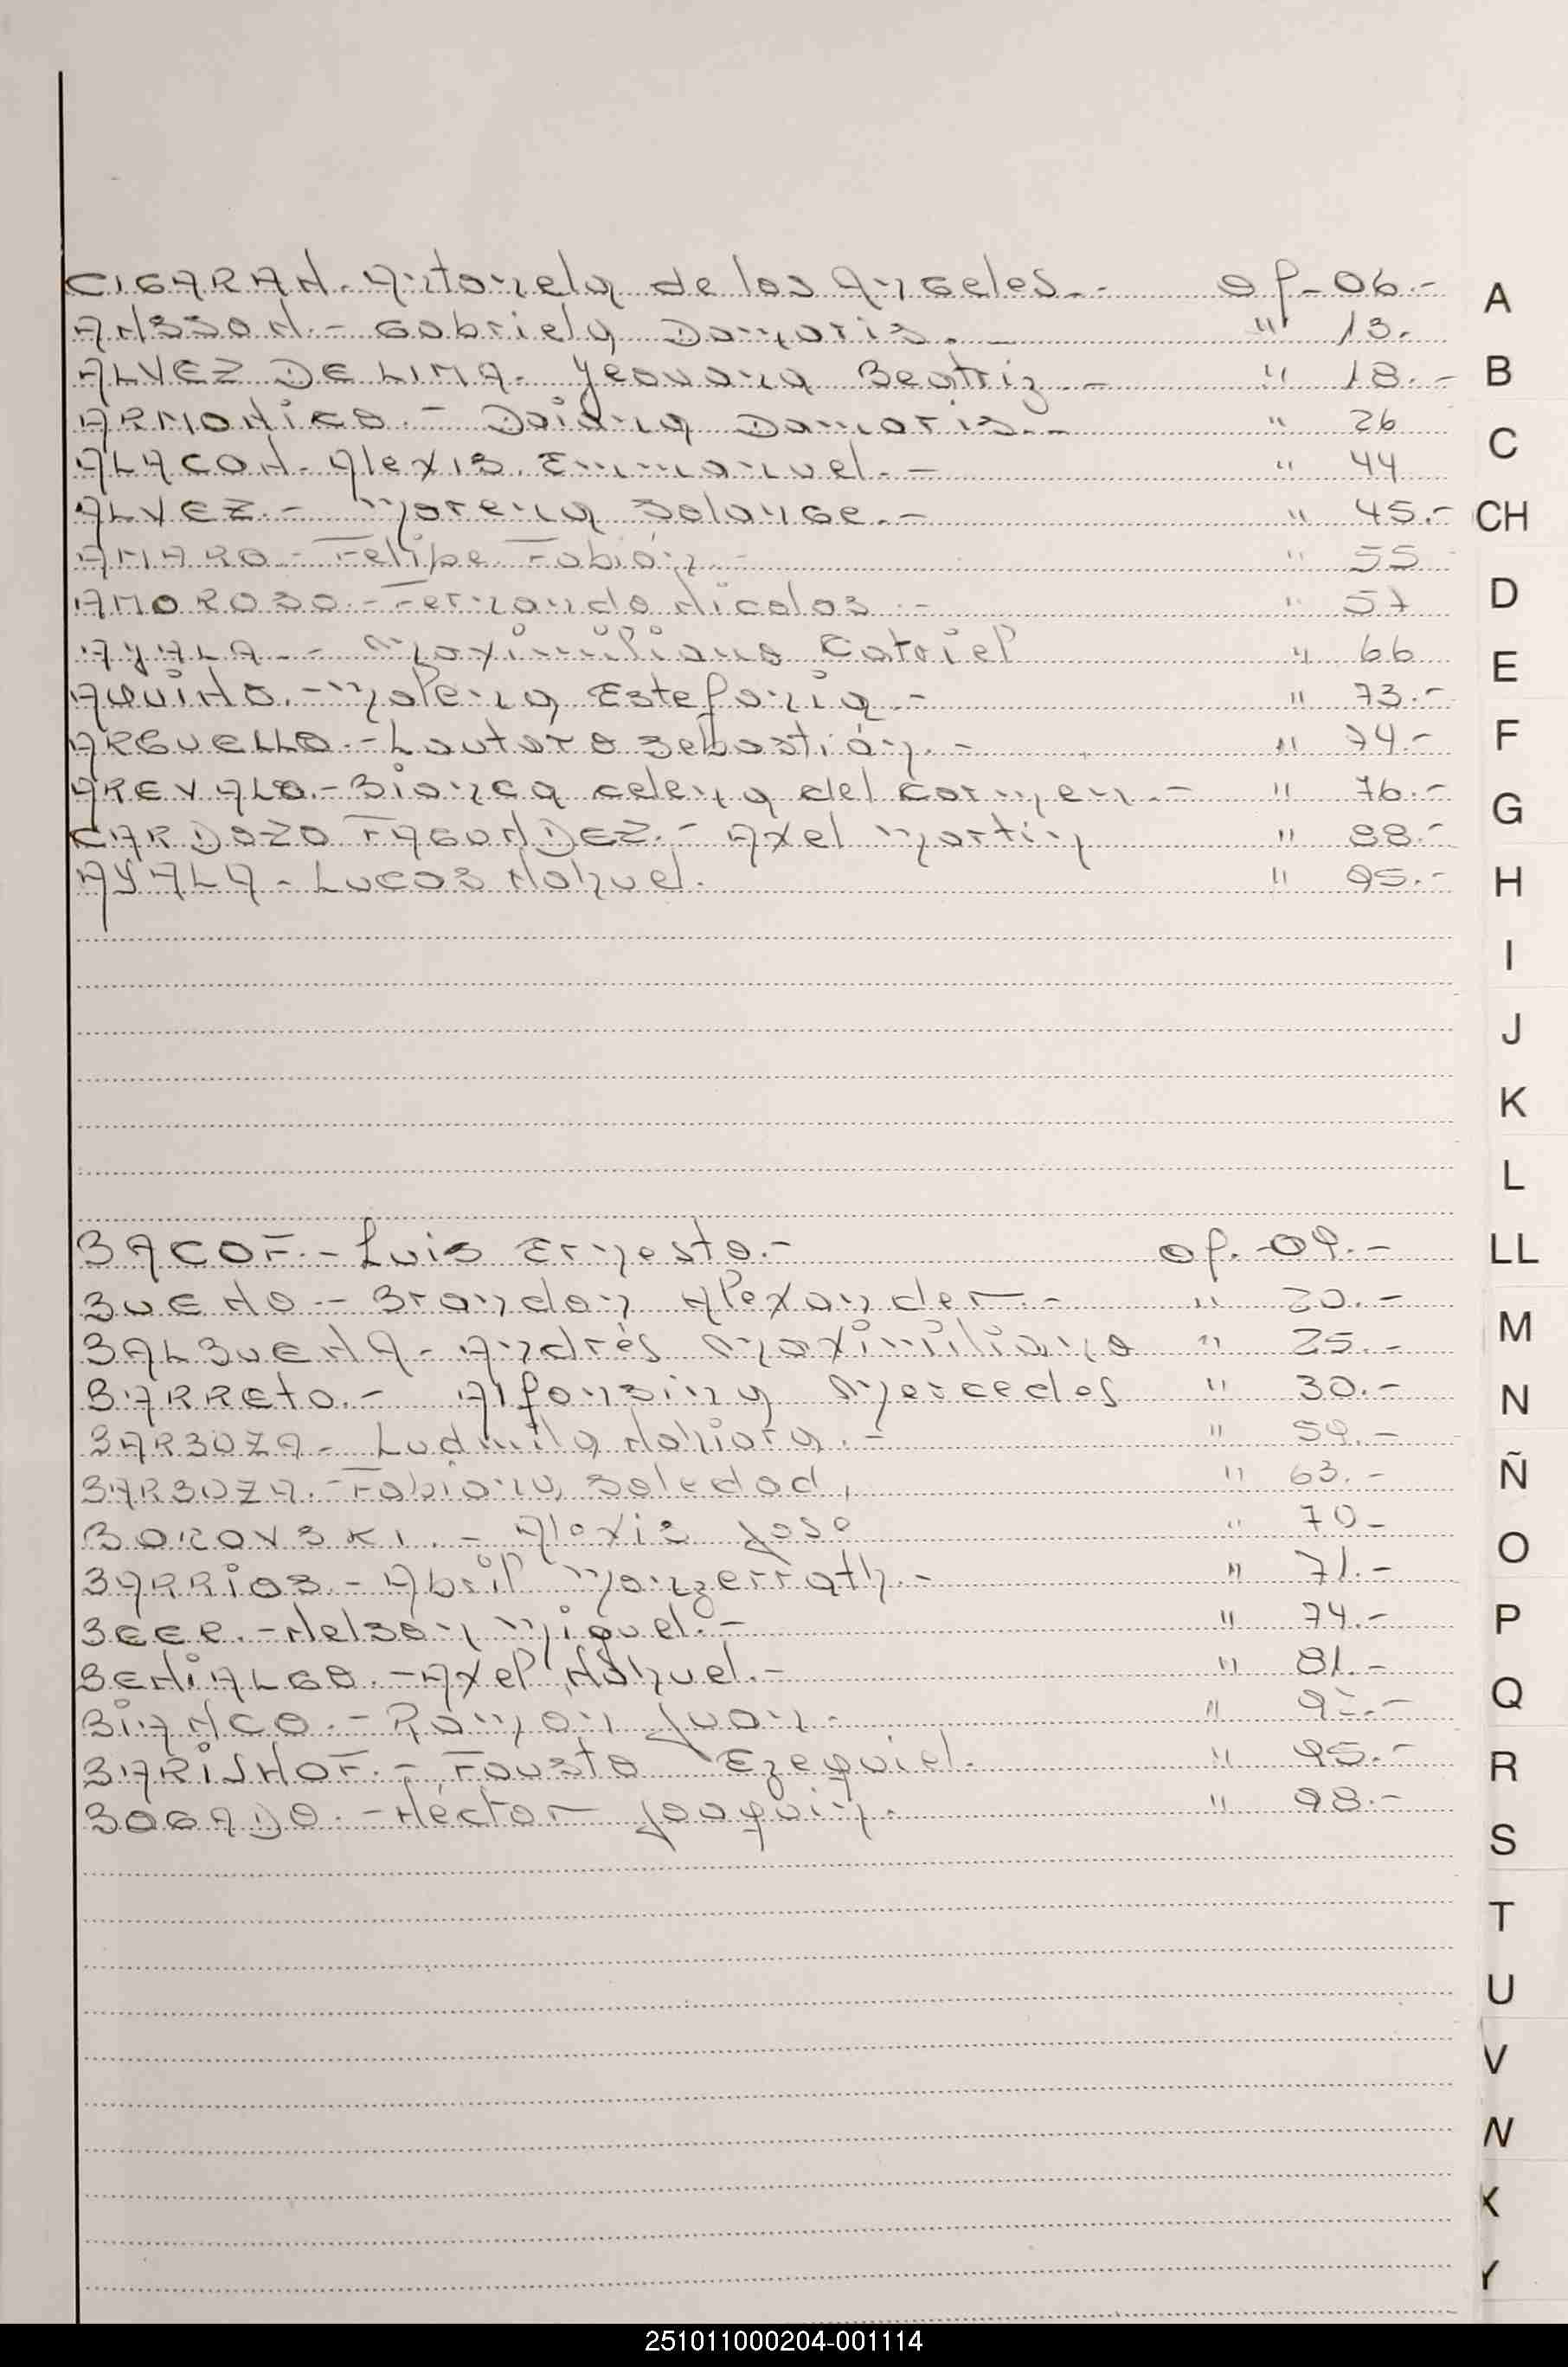 CIGARAN. Antonela de los Angeles.- of- 06.-
ANSSON.- Gabriela Damaris.- " 13.
ALVEZ DE LIMA. Yeovana Beatriz.- " 18.-
ARMONICO.- Daiana Damaris.- " 26
ALACON. Alexis Emmanuel.- " 44
ALVEZ.- Morena Solange.- " 45.-
AMARO - Felipe Fabián - " 55
AMOROSO.- Fernando Nicolas.- " 57
AYALA.- Maximiliano Catriel " 66
AQUINO.- Malena Estefania.- " 73.-
ARGUELLO.- Lautaro Sebastián.- " 74.-
AREVALO.- Bianca Celena del Carmen.- " 76.-
CARDOZO FAGUNDEZ.- Axel Martin " 88.-
AYALA - Lucas Nahuel. " 95.-
BACOF.- Luis Ernesto.- of.-09.-
BUENO - Brandon Alexander.- " 20.-
BALBUENA - Andrés Maximiliano " 25.-
BARRETO.- Alfonsina Mercedes " 30.-
BARBOZA - Ludmila Nahiara.- " 59.-
BARBOZA.- Fabiana Soledad, " 63.-
BOROVSKI.- Alexis José " 70-
BARRIOS.- Abril Monzerrath.- " 71.-
BEER.- Nelson Miguel.- " 74.-
BENIALGO.- Axel Nahuel.- " 81.-
BIANCO.- Ramón Juan. "
BARISHOF.- Fausto Ezequiel. " 95.-
BOGADO.- Héctor Joaquin. " 98.-
A
B
C
CH
D
E
F
G
H
I
J
K
L
LL
M
N
Ñ
O
P
Q
R
S
T
U
V
X
Y
251011000204-001114